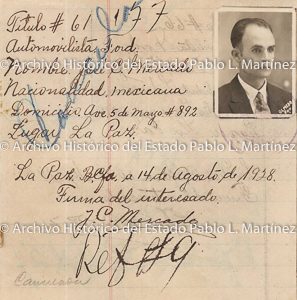 Titulo # 61 177
Automovilista Ford.
Nombre José C. Mercado
Nacionalidad mexicana
Domicilio Ave. 5 de mayo # 892
Lugar La Paz.
La Paz, B.Cfa. a 14 de Agosto de 1928.
Firma del interesado.
J. C. Mercado
Ref # 9
Archivo Histórico del Estado Pablo L. Martínez
Archivo Histórico del Estado Pablo L. Martínez
Archivo Histórico del Estado Pablo L. Martínez
Archivo Histórico del Estado Pablo L. Martínez